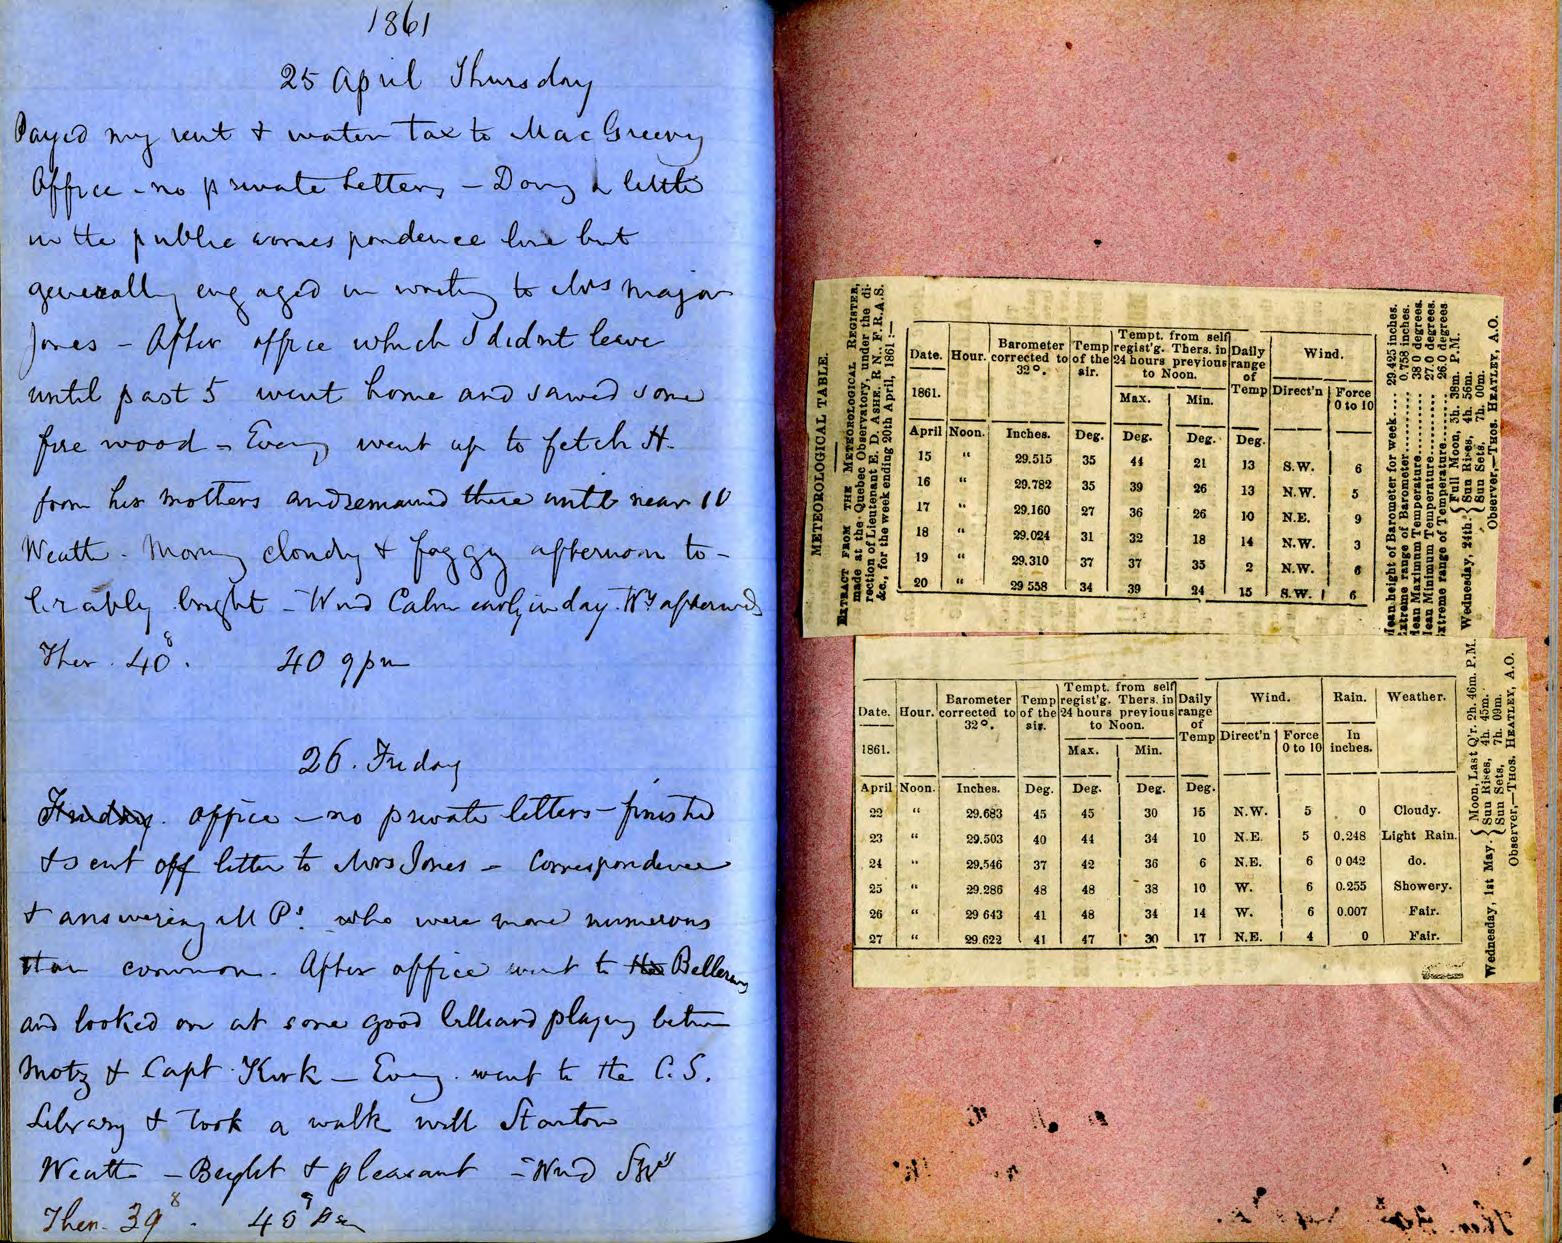 1861
25 April Thursday
Payed my rent & water tax to MacGreevy
Office - no private letters - Doing a little
in the public corres pondence line but
generally engaged in writing to Mrs Major
Jones - After office which I didnt leave
until past 5 went home and sawed some
fire wood - Eveng went up to fetch H.
from his mothers and remained there until near 10
Weath - Morning cloudy & foggy afternoon to-
lerably bright - Wind Calm early in day. Wy afterwds
Ther. 40 8. 40 9pm
26. Friday
Friday. office - no private letters - finished
& sent off letter to Mrs Jones - Correspondence
& answering M Ps. who were more numerous
than common. After office went to the Belleray
and looked on at some good billiard playing betwn
Motz & Capt. Kirk - Eveng. went to the C.S.
Library & took a walk with Stanton
Weath - Bright & pleasant - Wind SWy
Ther. 39 8. 40 9 pm
METEOROLOGICAL TABLE.
EXTRACT FROM THE METEOROLOGICAL REGISTER,
made at the Quebec Observatory, under the di-
rection of Lieutenant E. D. ASHE, R N., F. R.A.S.
&c., for the week ending 20th April, 1861 :—
Date. Hour. Barometer corrected to 32°. Temp of the air. Tempt. from self regist'g. Thers. in 24 hours previous to Noon. Daily range of Temp Wind.
1861. Max. Min. Direct'n Force 0 to 10
April Noon. Inches. Deg. Deg. Deg. Deg.
15 “ 29.515 35 44 21 13 S.W. 6
16 “ 29.782 35 39 26 13 N.W. 5
17 “ 29.160 27 36 26 10 N.E. 9
18 “ 29.024 31 32 18 14 N.W. 3
19 “ 29.310 37 37 35 2 N.W. 6
20 “ 29 558 34 39 24 15 S.W. 6
Mean height of Barometer for week.... 29.425 inches.
Extreme range of Barometer.......... 0.758 inches.
Mean Maximum Temperature........ 38 0 degrees.
Mean Minimum Temperature........ 27.0 degrees.
Extreme range of Temperature........ 26.0 degrees
Wednesday, 24th. { Full Moon, 5h. 38m. P.M.
Sun Rises, 4h. 56m.
Sun Sets, 7h. 00m.
Observer,—THOS. HEATLEY, A.O.
Date. Hour. Barometer corrected to 32°. Temp of the air. Tempt. from self regist'g. Thers. in 24 hours previous to Noon. Daily range of Temp Wind. Rain. Weather.
1861. Max. Min. Direct'n Force 0 to 10 In inches.
April Noon. Inches. Deg. Deg. Deg. Deg.
22 “ 29.683 45 45 30 15 N.W. 5 0 Cloudy.
23 “ 29.503 40 44 34 10 N.E. 5 0.248 Light Rain.
24 “ 29.546 37 42 36 6 N.E. 6 0 042 do.
25 “ 29.286 48 48 38 10 W. 6 0.255 Showery.
26 “ 29 643 41 48 34 14 W. 6 0.007 Fair.
27 “ 29.622 41 47 30 17 N.E. 4 0 Fair.
Wednesday, 1st May. { Moon, Last Q'r. 2h. 46m. P.M.
Sun Rises, 4h. 45m.
Sun Sets, 7h. 09m.
Observer,—THOS. HEATLEY, A.O.